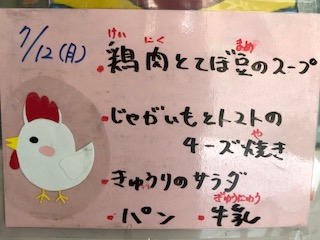 7/12(月)
けい にく まめ
・鶏肉とてぼ豆のスープ
・じゃがいもとトマトの
や
チーズ焼き
・きゅうりのサラダ
ぎゅうにゅう
・パン ・牛乳